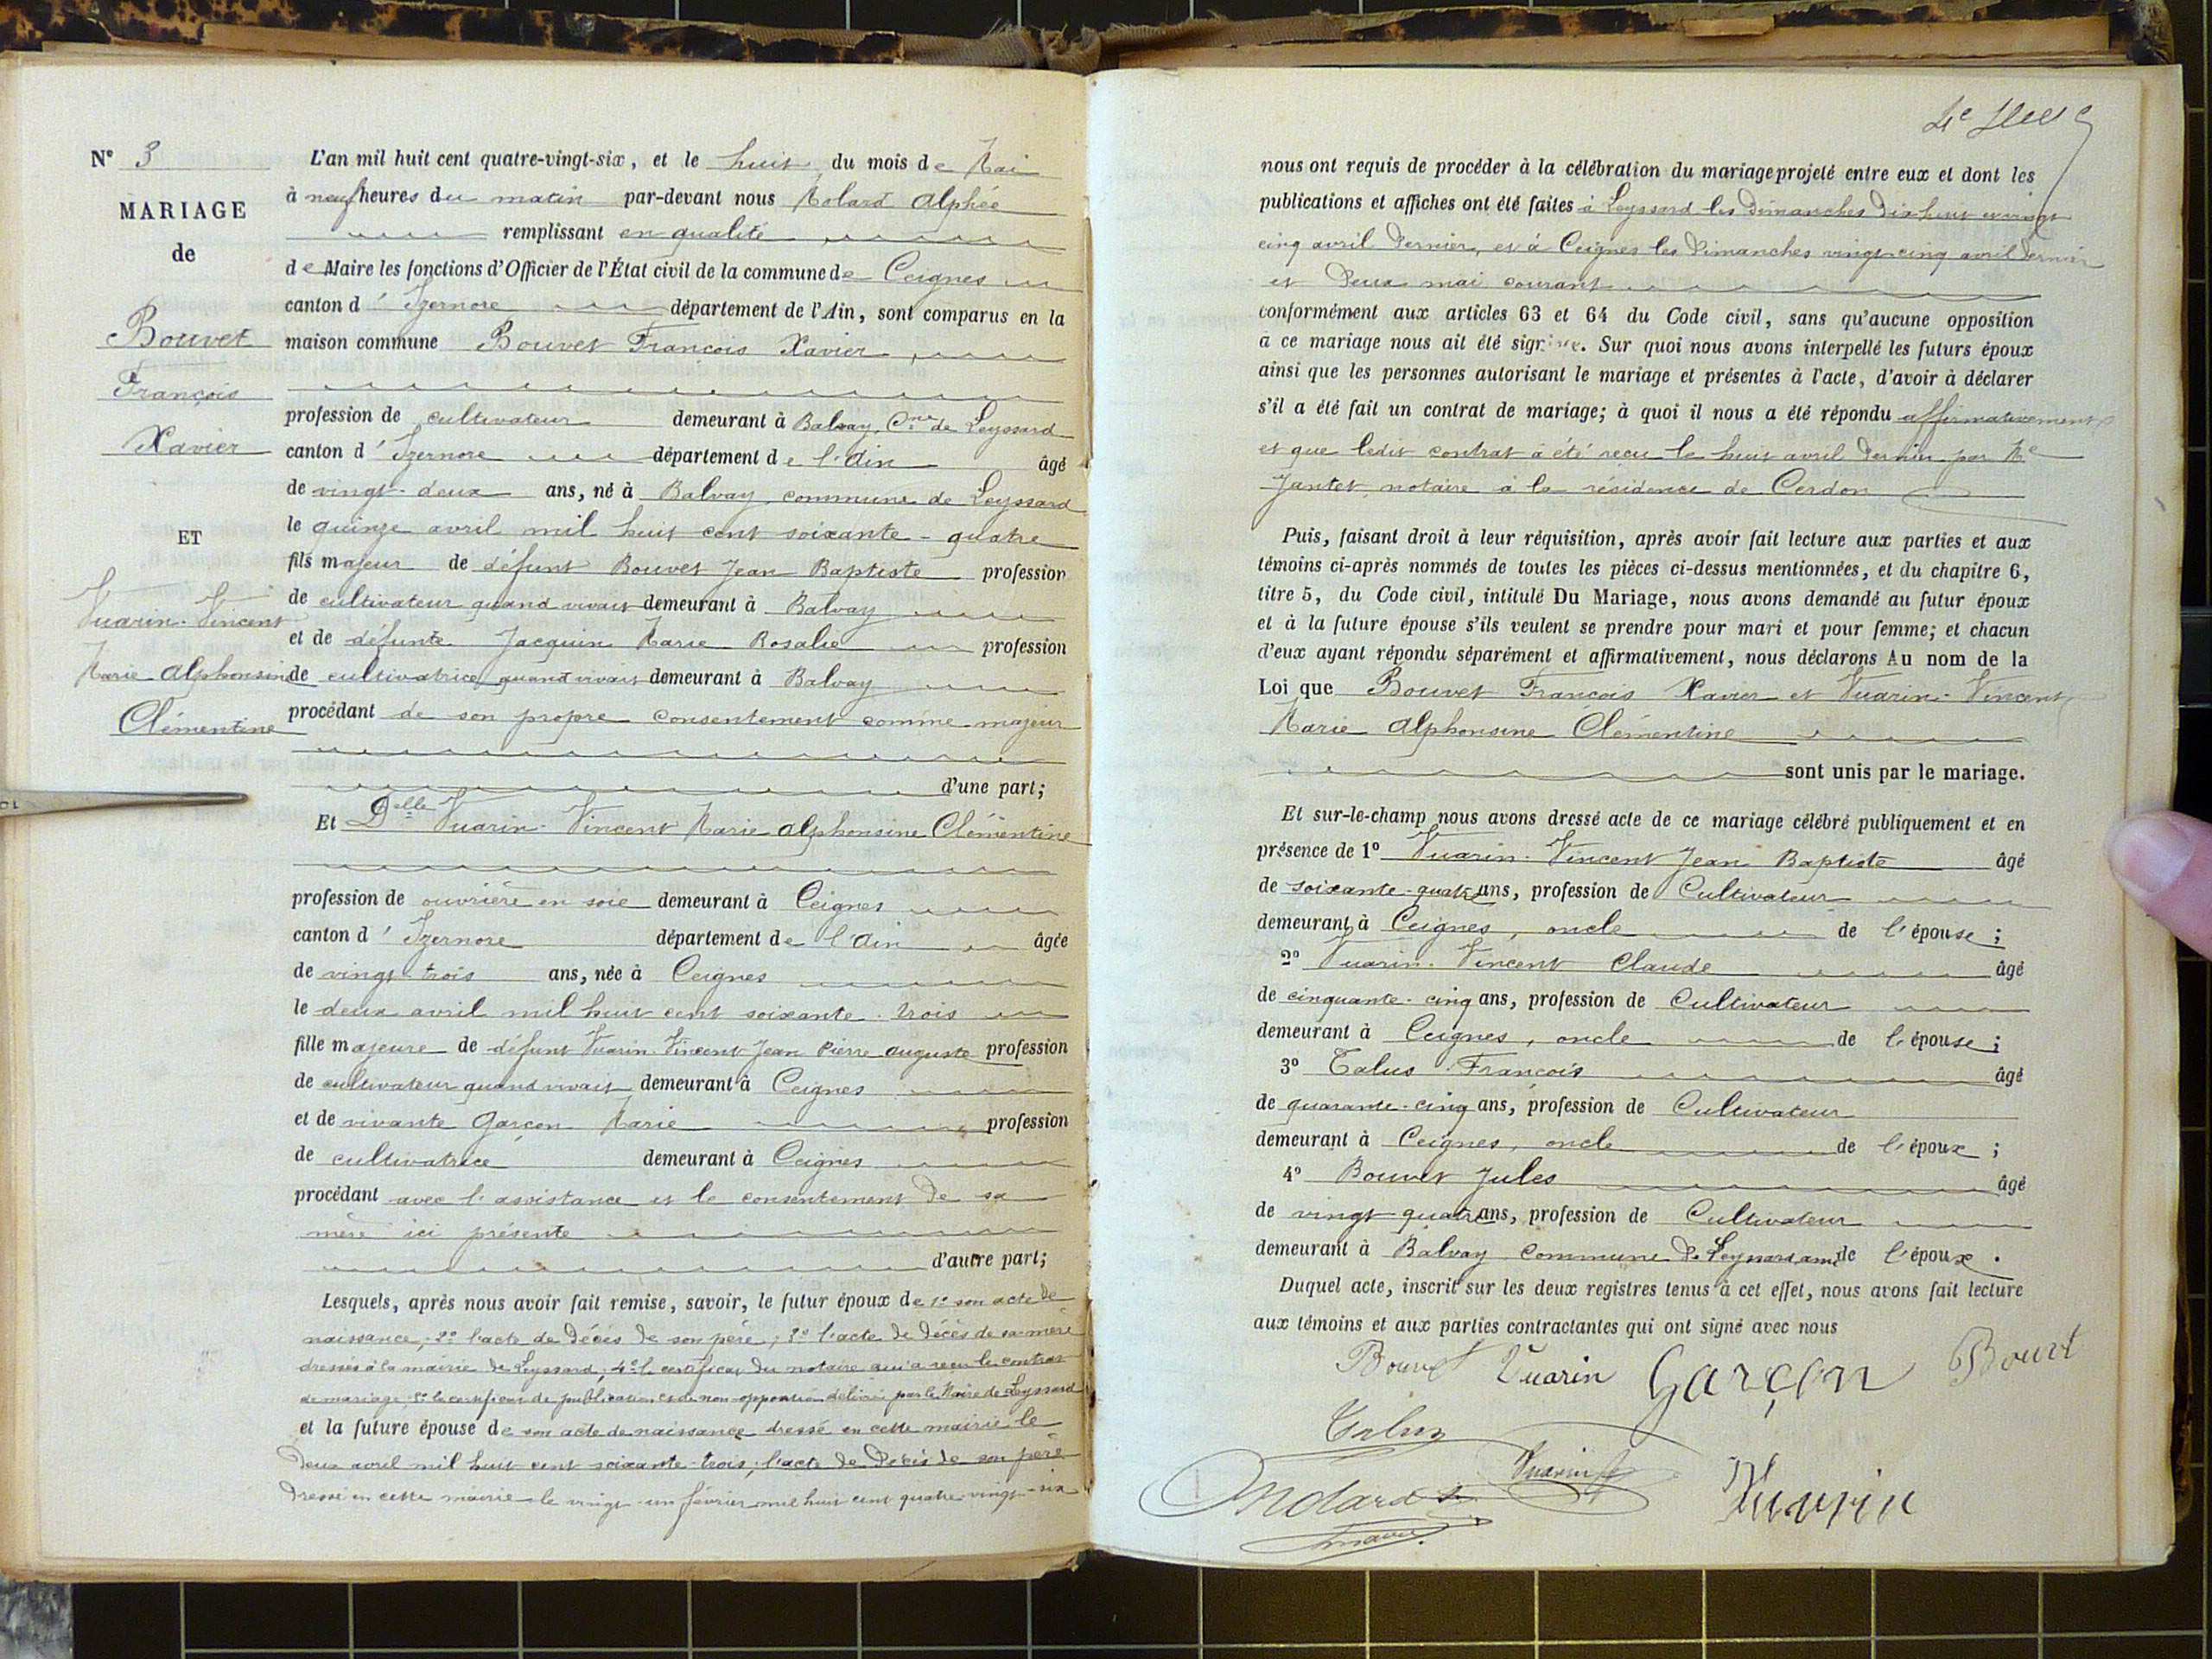 N° 3
MARIAGE
de
Bouvet
François
Xavier
ET
Vuarin-Vincent
Marie Alphonsine
Clémentine
L'an mil huit cent quatre-vingt-six, et le huit du mois de Mai
à neuf heures du matin par-devant nous Molard Alphée
remplissant en qualité
de Maire les fonctions d'Officier de l'État civil de la commune de Ceignes
canton d'Izernore département de l'Ain, sont comparus en la
maison commune Bouvet François Xavier
profession de cultivateur demeurant à Balvay, Cne de Leyssard
canton d'Izernore département de l'Ain âgé
de vingt-deux ans, né à Balvay, commune de Leyssard
le quinze avril mil huit cent soixante-quatre
fils majeur de défunt Bouvet Jean Baptiste profession
de cultivateur quand vivait demeurant à Balvay
et de défunte Jacquin Marie Rosalie profession
de cultivatrice quand vivait demeurant à Balvay
procédant de son propre consentement comme majeur
d'une part;
Et Delle Vuarin-Vincent Marie Alphonsine Clémentine
profession de ouvrière en soie demeurant à Ceignes
canton d'Izernore département de l'Ain âgée
de vingt-trois ans, née à Ceignes
le deux avril mil huit cent soixante-trois
fille majeure de défunt Vuarin-Vincent Jean Pierre Auguste profession
de cultivateur quand vivait demeurant à Ceignes
et de vivante Garçon Marie profession
de cultivatrice demeurant à Ceignes
procédant avec l'assistance et le consentement de sa
mère ici présente
d'autre part;
Lesquels, après nous avoir fait remise, savoir, le futur époux de 1° son acte de
naissance; 2° l'acte de décès de son père; 3° l'acte de décès de sa mère
dressés à la mairie de Leyssard; 4° le certificat du notaire qui a reçu le contrat
de mariage; 5° le certificat de publication et de non-opposition délivré par le Maire de Leyssard
et la future épouse de son acte de naissance dressé en cette mairie le
deux avril mil huit cent soixante-trois; l'acte de décès de son père
dressé en cette mairie le vingt-un février mil huit cent quatre-vingt-six
nous ont requis de procéder à la célébration du mariage projeté entre eux et dont les
publications et affiches ont été faites à Leyssard les dimanches dix-huit et vingt
cinq avril dernier, et à Ceignes les dimanches vingt-cinq avril dernier
et deux mai courant
conformément aux articles 63 et 64 du Code civil, sans qu'aucune opposition
à ce mariage nous ait été signifiée. Sur quoi nous avons interpellé les futurs époux
ainsi que les personnes autorisant le mariage et présentes à l'acte, d'avoir à déclarer
s'il a été fait un contrat de mariage; à quoi il nous a été répondu affirmativement
et que ledit contrat a été reçu le huit avril dernier par Me
Jantet, notaire à la résidence de Cerdon
Puis, faisant droit à leur réquisition, après avoir fait lecture aux parties et aux
témoins ci-après nommés de toutes les pièces ci-dessus mentionnées, et du chapitre 6,
titre 5, du Code civil, intitulé Du Mariage, nous avons demandé au futur époux
et à la future épouse s'ils veulent se prendre pour mari et pour femme; et chacun
d'eux ayant répondu séparément et affirmativement, nous déclarons Au nom de la
Loi que Bouvet François Xavier et Vuarin-Vincent
Marie Alphonsine Clémentine
sont unis par le mariage.
Et sur-le-champ nous avons dressé acte de ce mariage célébré publiquement et en
présence de 1° Vuarin-Vincent Jean Baptiste âgé
de soixante-quatre ans, profession de Cultivateur
demeurant à Ceignes, oncle de l'épouse;
2° Vuarin-Vincent Claude âgé
de cinquante-cinq ans, profession de Cultivateur
demeurant à Ceignes, oncle de l'épouse;
3° Talus François âgé
de quarante-cinq ans, profession de Cultivateur
demeurant à Ceignes, oncle de l'époux;
4° Bouvet Jules âgé
de vingt-quatre ans, profession de Cultivateur
demeurant à Balvay commune de Leyssard ami de l'époux.
Duquel acte, inscrit sur les deux registres tenus à cet effet, nous avons fait lecture
aux témoins et aux parties contractantes qui ont signé avec nous
Bouvet Vuarin Garçon Bouvt
Talus
Molard Vuarin Vuarin
maire